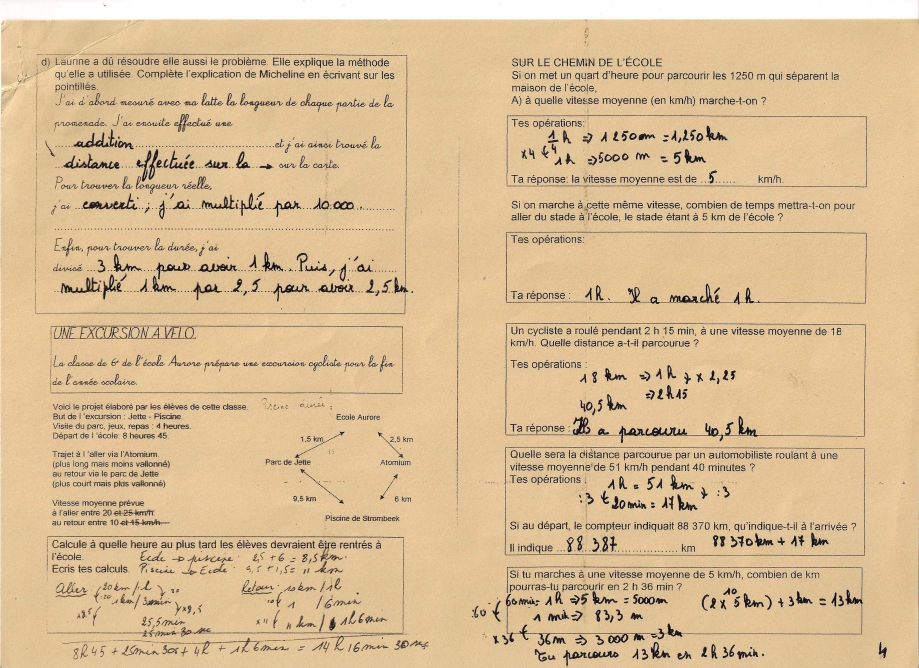 d) Launne a dû résoudre elle aussi le problème. Elle explique la méthode
qu'elle a utilisée. Complète l'explication de Micheline en écrivant sur les
pointillés.
J'ai d'abord mesuré avec ma latte la longueur de chaque partie de la
promenade. J'ai ensuite effectué une
addition et j'ai ainsi trouvé la
distance effectuée sur la → sur la carte.
Pour trouver la longueur réelle,
j'ai converti ; j'ai multiplié par 10.000.
Enfin, pour trouver la durée, j'ai
divisé 3 km pour avoir 1 km. Puis, j'ai
multiplié 1 km par 2,5 pour avoir 2,5 km.
UNE EXCURSION A VELO.
La classe de 6e de l'école Aurore prépare une excursion cycliste pour la fin
de l'année scolaire.
Voici le projet élaboré par les élèves de cette classe.
But de l'excursion : Jette - Piscine.
Visite du parc, jeux, repas : 4 heures.
Départ de l'école: 8 heures 45.
Trajet à l'aller via l'Atomium.
(plus long mais moins vallonné)
au retour via le parc de Jette
(plus court mais plus vallonné)
Vitesse moyenne prévue
à l'aller entre 20 et 25 km/h
au retour entre 10 et 15 km/h
Ecole Aurore
1,5 km
2,5 km
Parc de Jette
Atomium
9,5 km
6 km
Piscine de Strombeek
Calcule à quelle heure au plus tard les élèves devraient être rentrés à
l'école. Ecole → piscine : 2,5 + 6 = 8,5 km
Ecris tes calculs. Piscine → Ecole : 9,5 + 1,5 = 11 km
Aller 20 km / 1h
:20 :20
1 km / 3 min
x8,5 x8,5
25,5 min
25 min 30 sec
Retour : 10 km / 1h
1 / 6 min
x11 11 km / 1h 6 min
8h45 + 25min 30s + 4h + 1h6min = 14h 16min 30 sec
SUR LE CHEMIN DE L'ÉCOLE
Si on met un quart d'heure pour parcourir les 1250 m qui séparent la
maison de l'école,
A) à quelle vitesse moyenne (en km/h) marche-t-on ?
Tes opérations:
1/4 h ⇒ 1250m = 1,250 km
x4 1h ⇒ 5000 m = 5 km
Ta réponse: la vitesse moyenne est de 5 km/h.
Si on marche à cette même vitesse, combien de temps mettra-t-on pour
aller du stade à l'école, le stade étant à 5 km de l'école ?
Tes opérations:
Ta réponse : 1h. Il a marché 1h.
Un cycliste a roulé pendant 2 h 15 min, à une vitesse moyenne de 18
km/h. Quelle distance a-t-il parcourue ?
Tes opérations :
18 km ⇒ 1h x 2,25
⇒ 2h15
40,5 km
Ta réponse : Il a parcouru 40,5 km
Quelle sera la distance parcourue par un automobiliste roulant à une
vitesse moyenne de 51 km/h pendant 40 minutes ?
Tes opérations :
1h = 51 km
:3 20min = 17 km :3
Si au départ, le compteur indiquait 88 370 km, qu'indique-t-il à l'arrivée ?
Il indique 88 387 km 88 370 km + 17 km
Si tu marches à une vitesse moyenne de 5 km/h, combien de km
pourras-tu parcourir en 2 h 36 min ?
60min = 1h ⇒ 5 km = 5000m (2 x 5 km) + 3 km = 13 km
10
:60 1 min ⇒ 83,3 m
x36 36m ⇒ 3 000 m = 3 km
Tu parcours 13 km en 2h 36min.
4